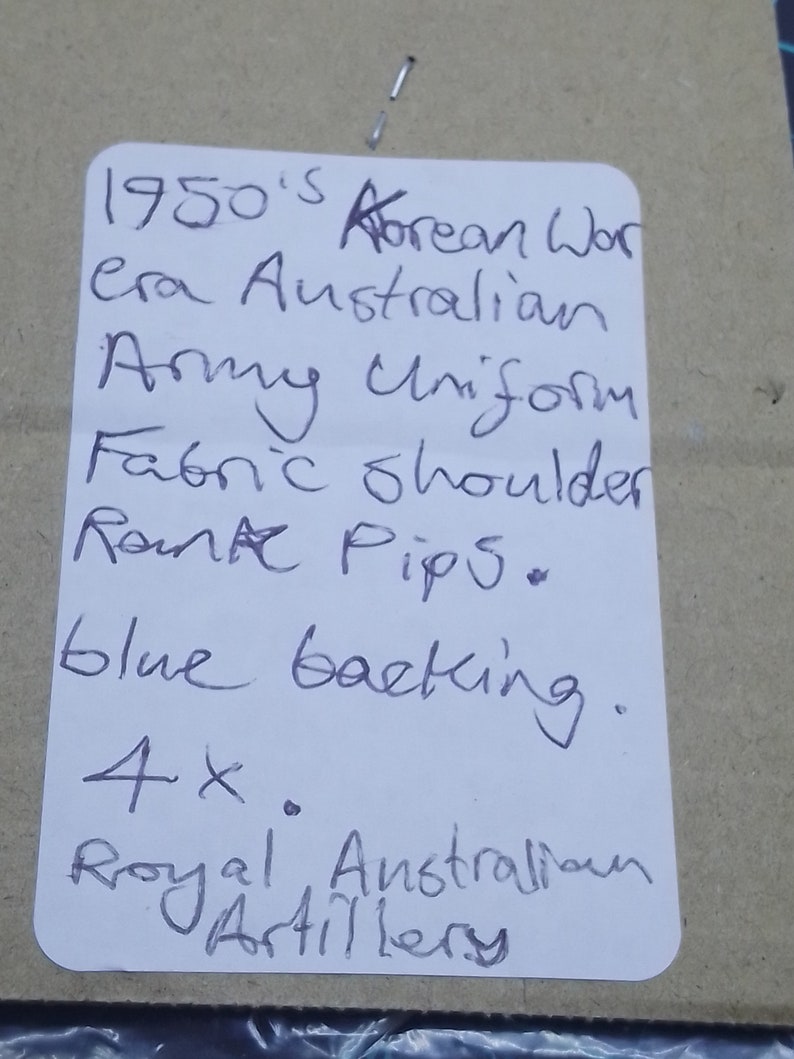 1950's Korean War
era Australian
Army Uniform
Fabric shoulder
Rank Pips.
blue backing.
4 x.
Royal Australian
Artillery